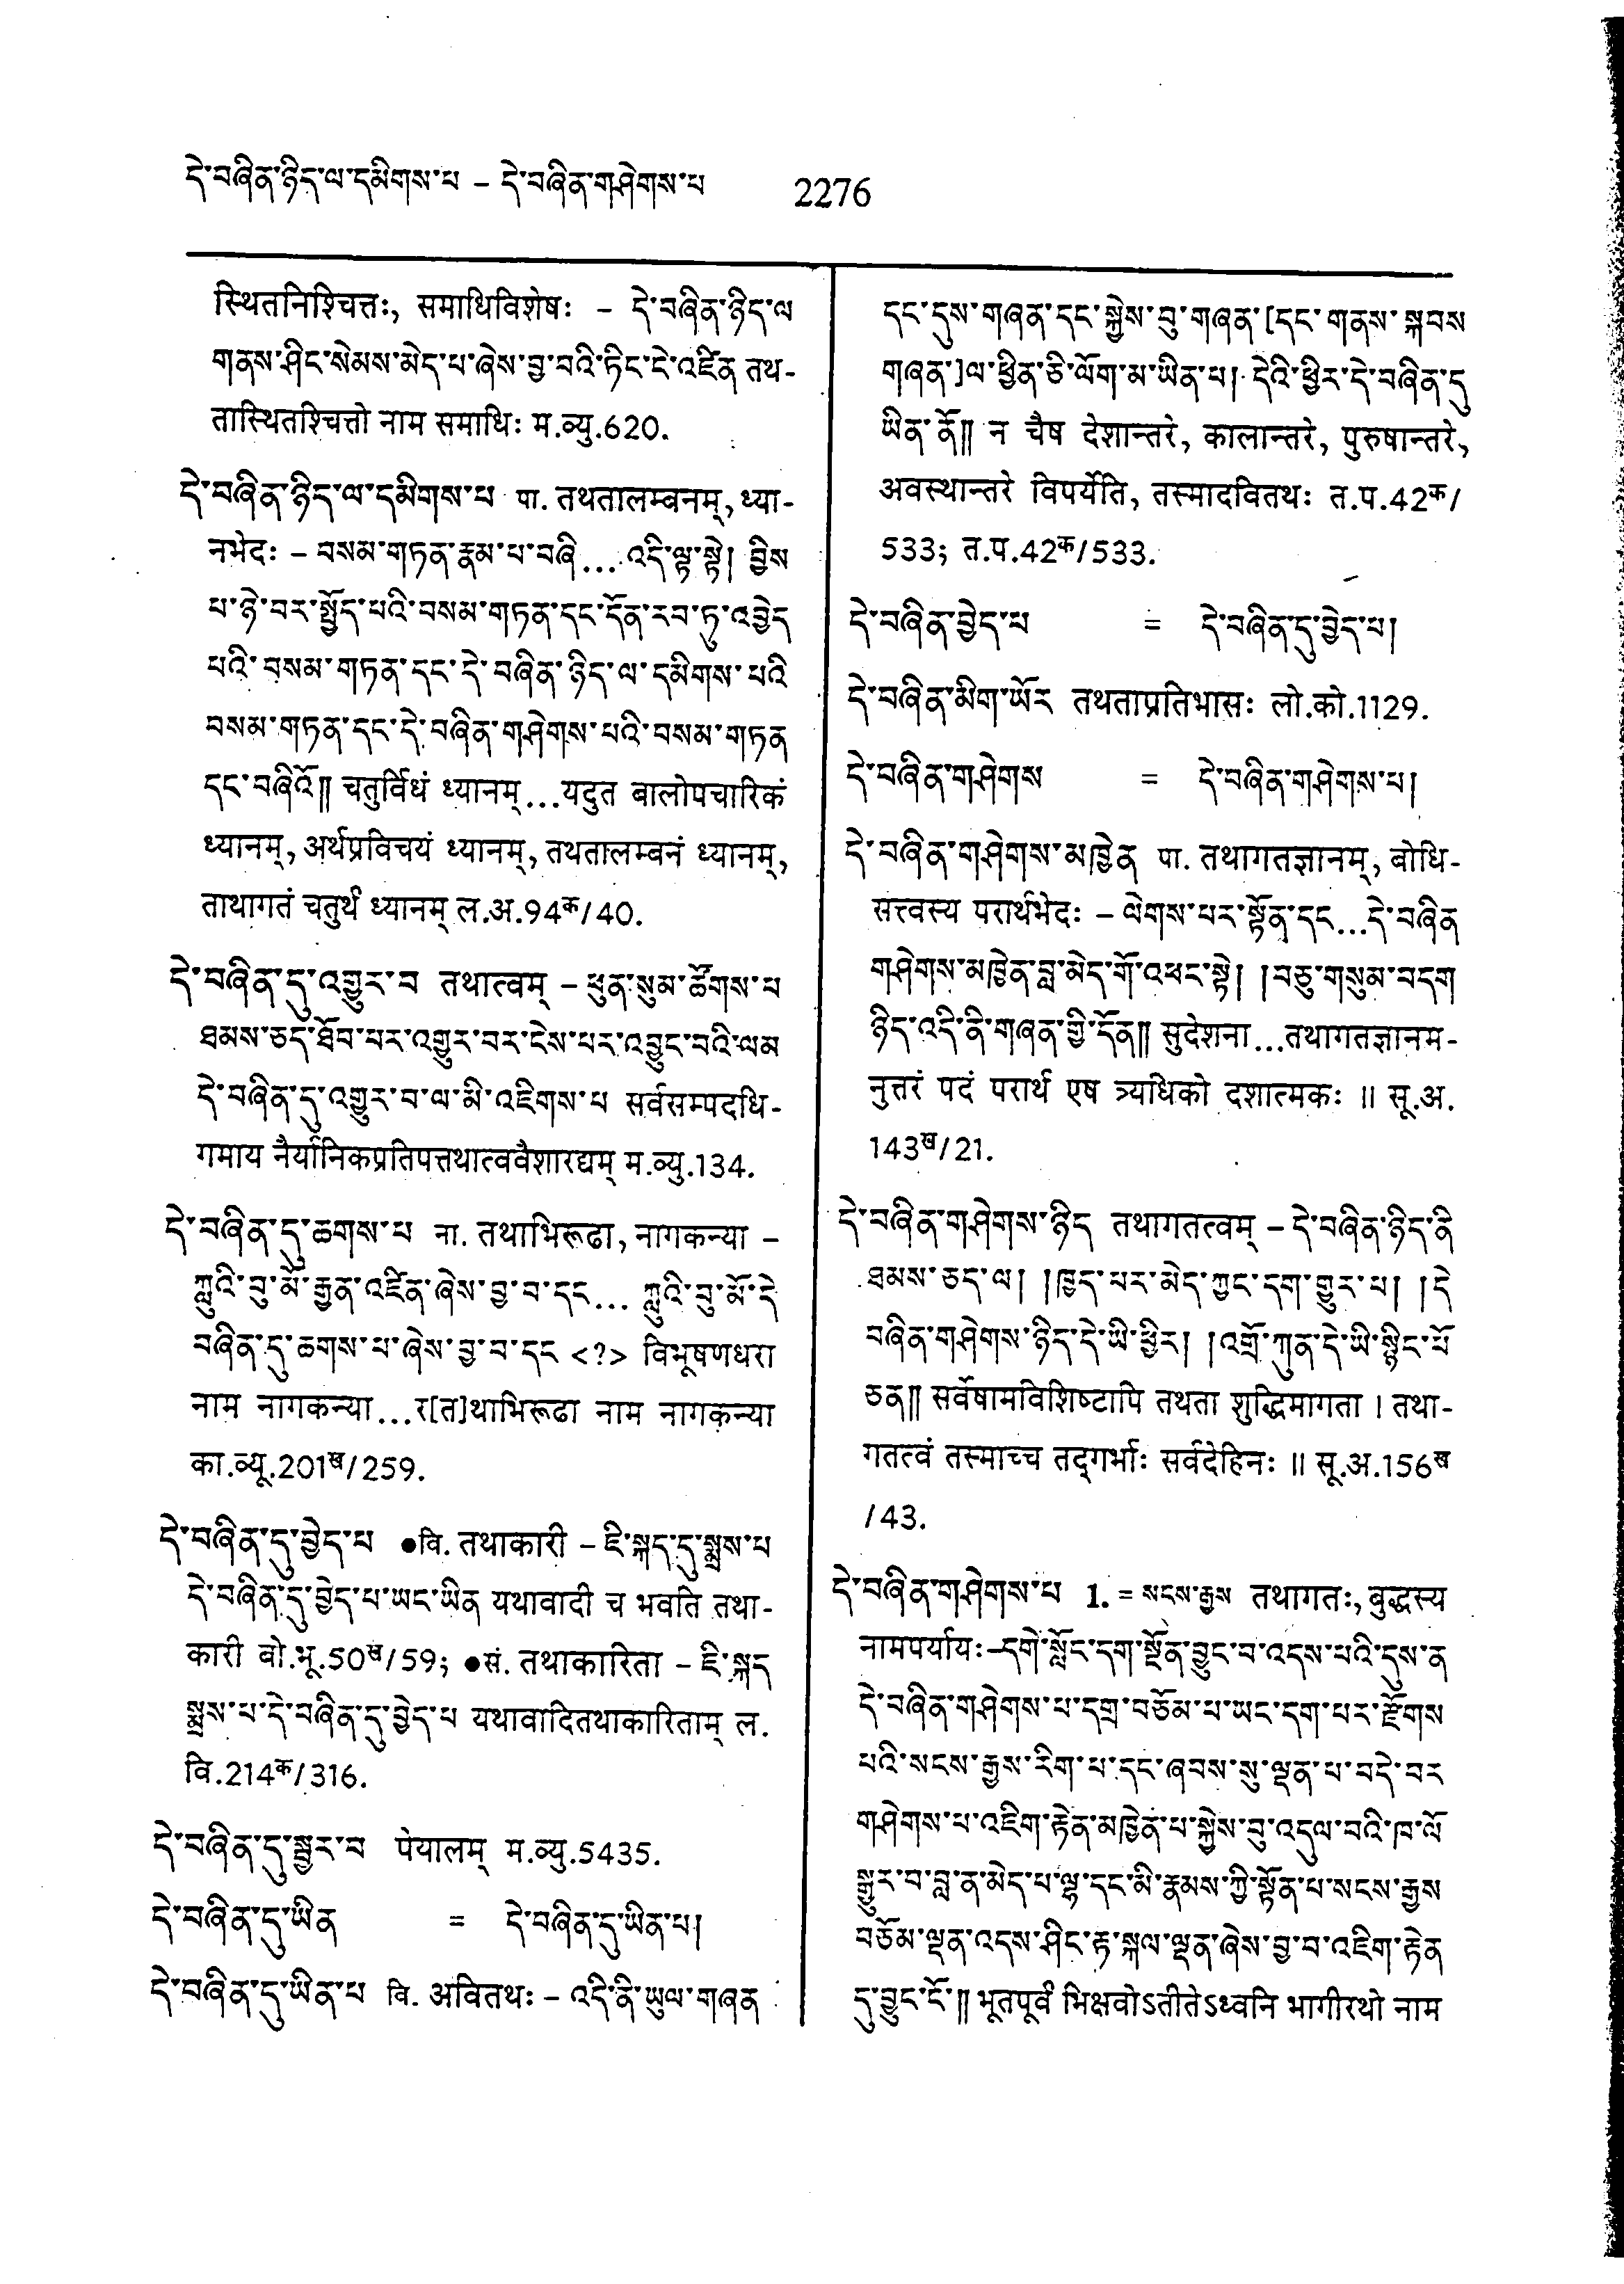 དེ་བཞིན་ཉིད་ལ་དམིགས་པ – དེ་བཞིན་གཤེགས་པ 2276
स्थितनिश्चित्तः, समाधिविशेषः – དེ་བཞིན་ཉིད་ལ
གནས་ཤིང་སེམས་མེད་པ་ཞེས་བྱ་བའི་ཏིང་ངེ་འཛིན तथ-
तास्थितश्चित्तो नाम समाधिः म.व्यु.620.
དེ་བཞིན་ཉིད་ལ་དམིགས་པ पा. तथतालम्बनम्, ध्या-
नभेदः – བསམ་གཏན་རྣམ་པ་བཞི... འདི་ལྟ་སྟེ། བྱིས
པ་ཉེ་བར་སྤྱོད་པའི་བསམ་གཏན་དང་དོན་རབ་ཏུ་འབྱེད
པའི་བསམ་གཏན་དང་དེ་བཞིན་ཉིད་ལ་དམིགས་པའི
བསམ་གཏན་དང་དེ་བཞིན་གཤེགས་པའི་བསམ་གཏན
དང་བཞིའོ།། चतुर्विधं ध्यानम्...यदुत बालोपचारिकं
ध्यानम्, अर्थप्रविचयं ध्यानम्, तथतालम्बनं ध्यानम्,
ताथागतं चतुर्थं ध्यानम् ल.अ.94क/40.
དེ་བཞིན་དུ་འགྱུར་བ तथात्वम् – ཕུན་སུམ་ཚོགས་པ
ཐམས་ཅད་ཐོབ་པར་འགྱུར་བར་ངེས་པར་འབྱུང་བའི་ལམ
དེ་བཞིན་དུ་འགྱུར་བ་ལ་མི་འཇིགས་པ सर्वसम्पदधि-
गमाय नैर्याणिकप्रतिपत्तथात्ववैशारद्यम् म.व्यु.134.
དེ་བཞིན་དུ་ཆགས་པ ना. तथाभिरूढा, नागकन्या –
ཀླུའི་བུ་མོ་རྒྱན་འཛིན་ཞེས་བྱ་བ་དང... ཀླུའི་བུ་མོ་དེ
བཞིན་དུ་ཆགས་པ་ཞེས་བྱ་བ་དང <?> विभूषणधरा
नाम नागकन्या...र[त]थाभिरूढा नाम नागकन्या
का.व्यू.201ख/259.
དེ་བཞིན་དུ་བྱེད་པ ●वि. तथाकारी – ཇི་སྐད་དུ་སྨྲས་པ
དེ་བཞིན་དུ་བྱེད་པ་ཡང་ཡིན यथावादी च भवति तथा-
कारी बो.भू.50ख/59; ●सं. तथाकारिता – ཇི་སྐད
སྨྲས་པ་དེ་བཞིན་དུ་བྱེད་པ यथावादितथाकारिताम् ल.
वि.214क/316.
དེ་བཞིན་དུ་སྦྱར་བ पेयालम् म.व्यु.5435.
དེ་བཞིན་དུ་ཡིན = དེ་བཞིན་དུ་ཡིན་པ།
དེ་བཞིན་དུ་ཡིན་པ वि. अवितथः – འདི་ནི་ཡུལ་གཞན
དང་དུས་གཞན་དང་སྐྱེས་བུ་གཞན་[དང་གནས་སྐབས
གཞན་]ལ་ཕྱིན་ཅི་ལོག་མ་ཡིན་པ། དེའི་ཕྱིར་དེ་བཞིན་དུ
ཡིན་ནོ།། न चैष देशान्तरे, कालान्तरे, पुरुषान्तरे,
अवस्थान्तरे विपर्येति, तस्मादवितथः त.प.42क/
533; त.प.42क/533.
དེ་བཞིན་བྱེད་པ = དེ་བཞིན་དུ་བྱེད་པ།
དེ་བཞིན་མིག་ཡོར तथताप्रतिभासः लो.को.1129.
དེ་བཞིན་གཤེགས = དེ་བཞིན་གཤེགས་པ།
དེ་བཞིན་གཤེགས་མཁྱེན पा. तथागतज्ञानम्, बोधि-
सत्त्वस्य परार्थभेदः – ལེགས་པར་སྟོན་དང...དེ་བཞིན
གཤེགས་མཁྱེན་བླ་མེད་གོ་འཕང་སྟེ། །བཅུ་གསུམ་བདག
ཉིད་འདི་ནི་གཞན་གྱི་དོན།། सुदेशना...तथागतज्ञानम-
नुत्तरं पदं परार्थ एष त्र्यधिको दशात्मकः ॥ सू.अ.
143ख/21.
དེ་བཞིན་གཤེགས་ཉིད तथागतत्वम् – དེ་བཞིན་ཉིད་ནི
ཐམས་ཅད་ལ། །ཁྱད་པར་མེད་ཀྱང་དག་གྱུར་པ། །དེ
བཞིན་གཤེགས་ཉིད་དེ་ཡི་ཕྱིར། །འགྲོ་ཀུན་དེ་ཡི་སྙིང་པོ
ཅན།། सर्वेषामविशिष्टापि तथता शुद्धिमागता । तथा-
गतत्वं तस्माच्च तद्गर्भाः सर्वदेहिनः ॥ सू.अ.156ख
/43.
དེ་བཞིན་གཤེགས་པ 1. = སངས་རྒྱས तथागतः, बुद्धस्य
नामपर्यायः–དགེ་སློང་དག་སྔོན་བྱུང་བ་འདས་པའི་དུས་ན
དེ་བཞིན་གཤེགས་པ་དགྲ་བཅོམ་པ་ཡང་དག་པར་རྫོགས
པའི་སངས་རྒྱས་རིག་པ་དང་ཞབས་སུ་ལྡན་པ་བདེ་བར
གཤེགས་པ་འཇིག་རྟེན་མཁྱེན་པ་སྐྱེས་བུ་འདུལ་བའི་ཁ་ལོ
སྒྱུར་བ་བླ་ན་མེད་པ་ལྷ་དང་མི་རྣམས་ཀྱི་སྟོན་པ་སངས་རྒྱས
བཅོམ་ལྡན་འདས་ཤིང་རྟ་སྐལ་ལྡན་ཞེས་བྱ་བ་འཇིག་རྟེན
དུ་བྱུང་ངོ་།། भूतपूर्वं भिक्षवोऽतीतेऽध्वनि भागीरथो नाम